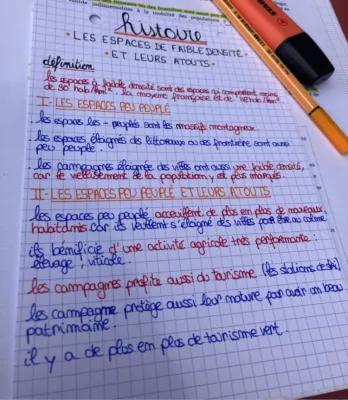 histoire
• LES ESPACES DE FAIBLE DENSITÉ
• ET LEURS ATOUTS •
définition
les espaces à faible densité sont des espaces qui comptent moins
de 30 hab/km². la moyenne française est de hab/km²
I- LES ESPACES PEU PEUPLÉ
les espaces les - peuplés sont les massifs montagneux
les espaces éloignés des littoraux ou des frontières sont aussi
peu peuplé.
les campagnes éloignée des villes ont aussi une faible densité,
car le vieillissement de la population, est plus marqués.
II- LES ESPACES PEU PEUPLÉ ET LEURS ATOUTS
les espaces peu peuplé accueillent de plus en plus de nouveaux
habitants car ils veulent s'éloigné des villes pour être au calme
ils bénificie d'une activité agricole très performante :
élevage, viticole.
les campagnes profite aussi du tourisme (les stations de ski)
les campagne protège aussi leur nature pour avoir un beau
patrimoine.
il y a de plus en plus de tourisme vert.